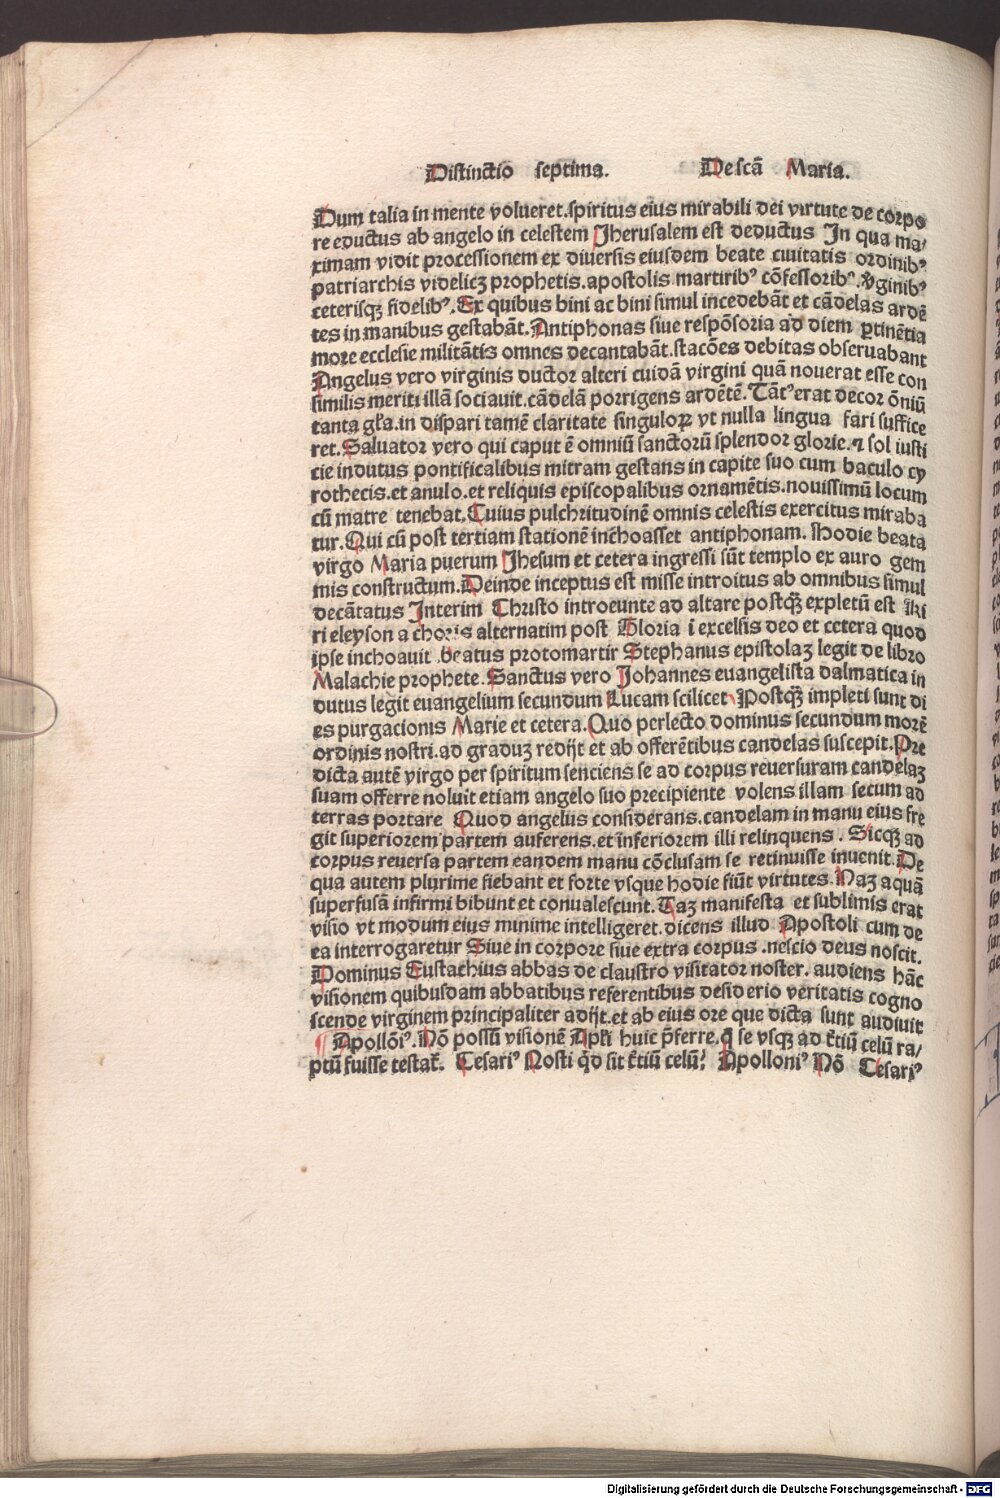 Distinctio septima. De scā Maria.
Dum talia in mente volueret.spiritus eius mirabili dei virtute de corpo
re eductus ab angelo in celestem Jherusalem est deductus In qua ma/
ximam vidit processionem ex diuersis eiusdem beate ciuitatis ordinibꝰ
patriarchis videlicꝫ prophetis.apostolis martiribꝰ cōfessoribꝰ.v̓ginibꝰ
ceterisqꝫ fidelibꝰ.Ex quibus bini ac bini simul incedebāt et cādelas ardē
tes in manibus gestabāt.Antiphonas siue respōsoria ad diem ꝑtinētia
more ecclesie militātis omnes decantabāt.stacōes debitas obseruabant
Angelus vero virginis ductor alteri cuidā virgini quā nouerat esse con
similis meriti illā sociauit.cādelā porrigens ardētē.Tātꝰ erat decor ōniū
tanta gl̓a.in dispari tamē claritate singuloꝝ vt nulla lingua fari suffice
ret.Saluator vero qui caput ē omniū sanctorū splendor glorie.⁊ sol iusti
cie indutus pontificalibus mitram gestans in capite suo cum baculo cy
rothecis.et anulo.et reliquis episcopalibus ornamētis.nouissimū locum
cū matre tenebat.Cuius pulchritudinē omnis celestis exercitus miraba
tur.Qui cū post tertiam stationē inchoasset antiphonam. Hodie beata
virgo Maria puerum Jhesum et cetera ingressi sūt templo ex auro gem
mis constructum.Deinde inceptus est misse introitus ab omnibus simul
decātatus Interim Christo introeunte ad altare postqꝫ̄ expletū est Ki
ri eleyson a choris alternatim post Gloria ī excelsis deo et cetera quod
ipse inchoauit .beatus protomartir Stephanus epistolaꝫ legit de libro
Malachie prophete.Sanctus vero Johannes euangelista dalmatica in
dutus legit euangelium secundum Lucam scilicet Postqꝫ̄ impleti sunt di
es purgacionis Marie et cetera.Quo perlecto dominus secundum morē
ordinis nostri.ad graduꝫ redijt et ab offerētibus candelas suscepit.Pre
dicta autē virgo per spiritum senciens se ad corpus reuersuram candelaꝫ
suam offerre noluit etiam angelo suo precipiente volens illam secum ad
terras portare Quod angelus considerans.candelam in manu eius fre
git superiorem partem auferens.et inferiorem illi relinquens . Sicqꝫ ad
corpus reuersa partem eandem manu cōclusam se retinuisse inuenit.De
qua autem plurime fiebant et forte vsque hodie fiūt virtutes.Naꝫ aquā
superfusā infirmi bibunt et conualescunt.Taꝫ manifesta et sublimis erat
visio vt modum eius minime intelligeret.dicens illud Apostoli cum de
ea interrogaretur Siue in corpore siue extra corpus .nescio deus noscit.
Dominus Eustachius abbas de claustro visitator noster. audiens hāc
visionem quibusdam abbatibus referentibus desiderio veritatis cogno
scende virginem principaliter adijt.et ab eius ore que dicta sunt audiuit
Apollōiꝰ. Nō possū visionē Apl̓i huic p̄ferre.q̄ se vsqꝫ ad t̓tiū celū ra/
ptū fuisse testat̓. Cesariꝰ Nosti q̓d sit t̓tiū celū? Apolloniꝰ Nō Cesariꝰ
Digitalisierung gefördert durch die Deutsche Forschungsgemeinschaft - DFG